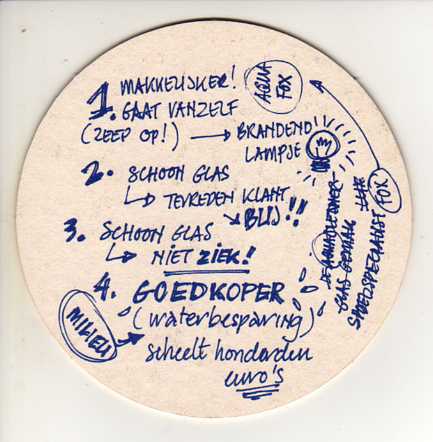 1. MAKKELIJKER!
GAAT VANZELF
(ZEEP OP!) → BRANDEND
LAMPJE
AQUA
FOX
2. SCHOON GLAS
↳ TEVREDEN KLANT
↘ BLIJ!!
3. SCHOON GLAS
↳ NIET ZIEK!
4. GOEDKOPER
(waterbesparing)
MILIEU
scheelt honderden
euro's
GLAS GEMAK
SPOELSPECIALIST FOX